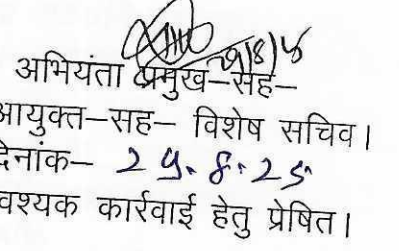 29/8/25
अभियंता प्रमुख–सह–
आयुक्त–सह– विशेष सचिव।
देनांक– 29.8.25
वश्यक कार्रवाई हेतु प्रेषित।